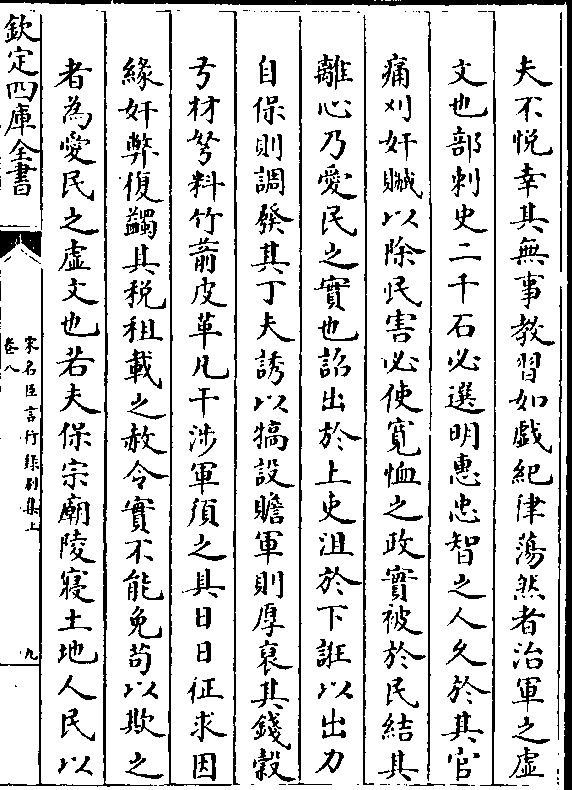 夫不悦幸其無事教習如戲紀律蕩然者治軍之虚
文也部刺史二千石必選明惠忠智之人久於其官
痛刈奸贓以除民害必使寛恤之政實被於民結其
離心乃愛民之實也詔出於上吏沮於下誑以出力
自保則調發其丁夫誘以犒設贍軍則厚裒其錢穀
弓材弩料竹箭皮革凡干涉軍須之具日日征求因
緣奸弊復蠲其税租載之赦令實不能免苟以欺之
者為愛民之虚文也若夫保宗廟陵寢土地人民以
欽定四庫全書
宋名臣言行録别集上
卷八
九